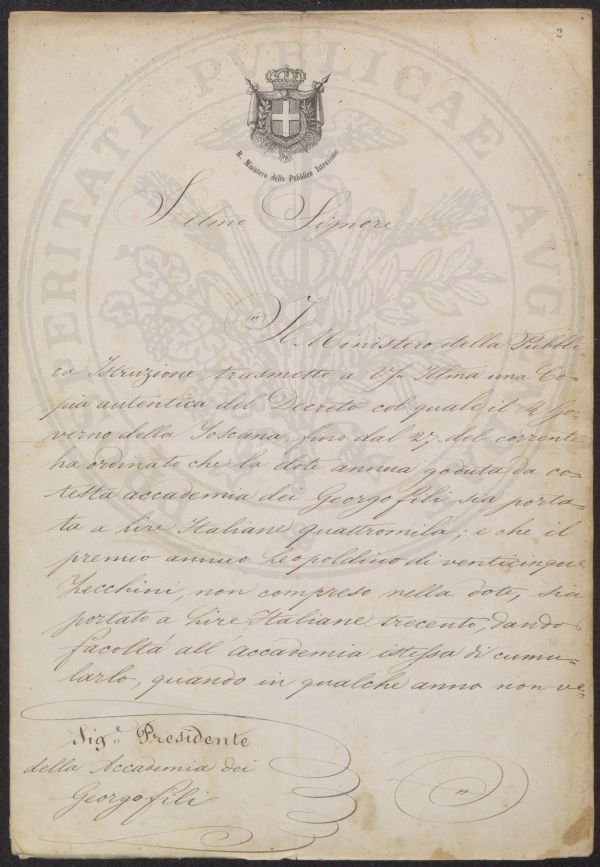 2
PROSPERITATI PUBLICAE AUGENDAE
R. Ministero della Pubblica Istruzione
Illmo Signore
"Il Ministero della Pubbli-
ca Istruzione trasmette a V.S. Illma una Co-
pia autentica del Decreto col quale il R. Go-
verno della Toscana, fino dal 27. del corrente
ha ordinato che la dote annua goduta da co-
testa accademia dei Georgofili sia porta-
ta a Lire Italiane quattromila; e che il
premio annuo Leopoldino di venticinque
Zecchini, non compreso nella dote, sia
portato a Lire Italiane trecento, dando
facoltà all'accademia istessa di cumu-
larlo, quando in qualche anno non ve-
Sig.e Presidente
della Accademia dei
Georgofili
"